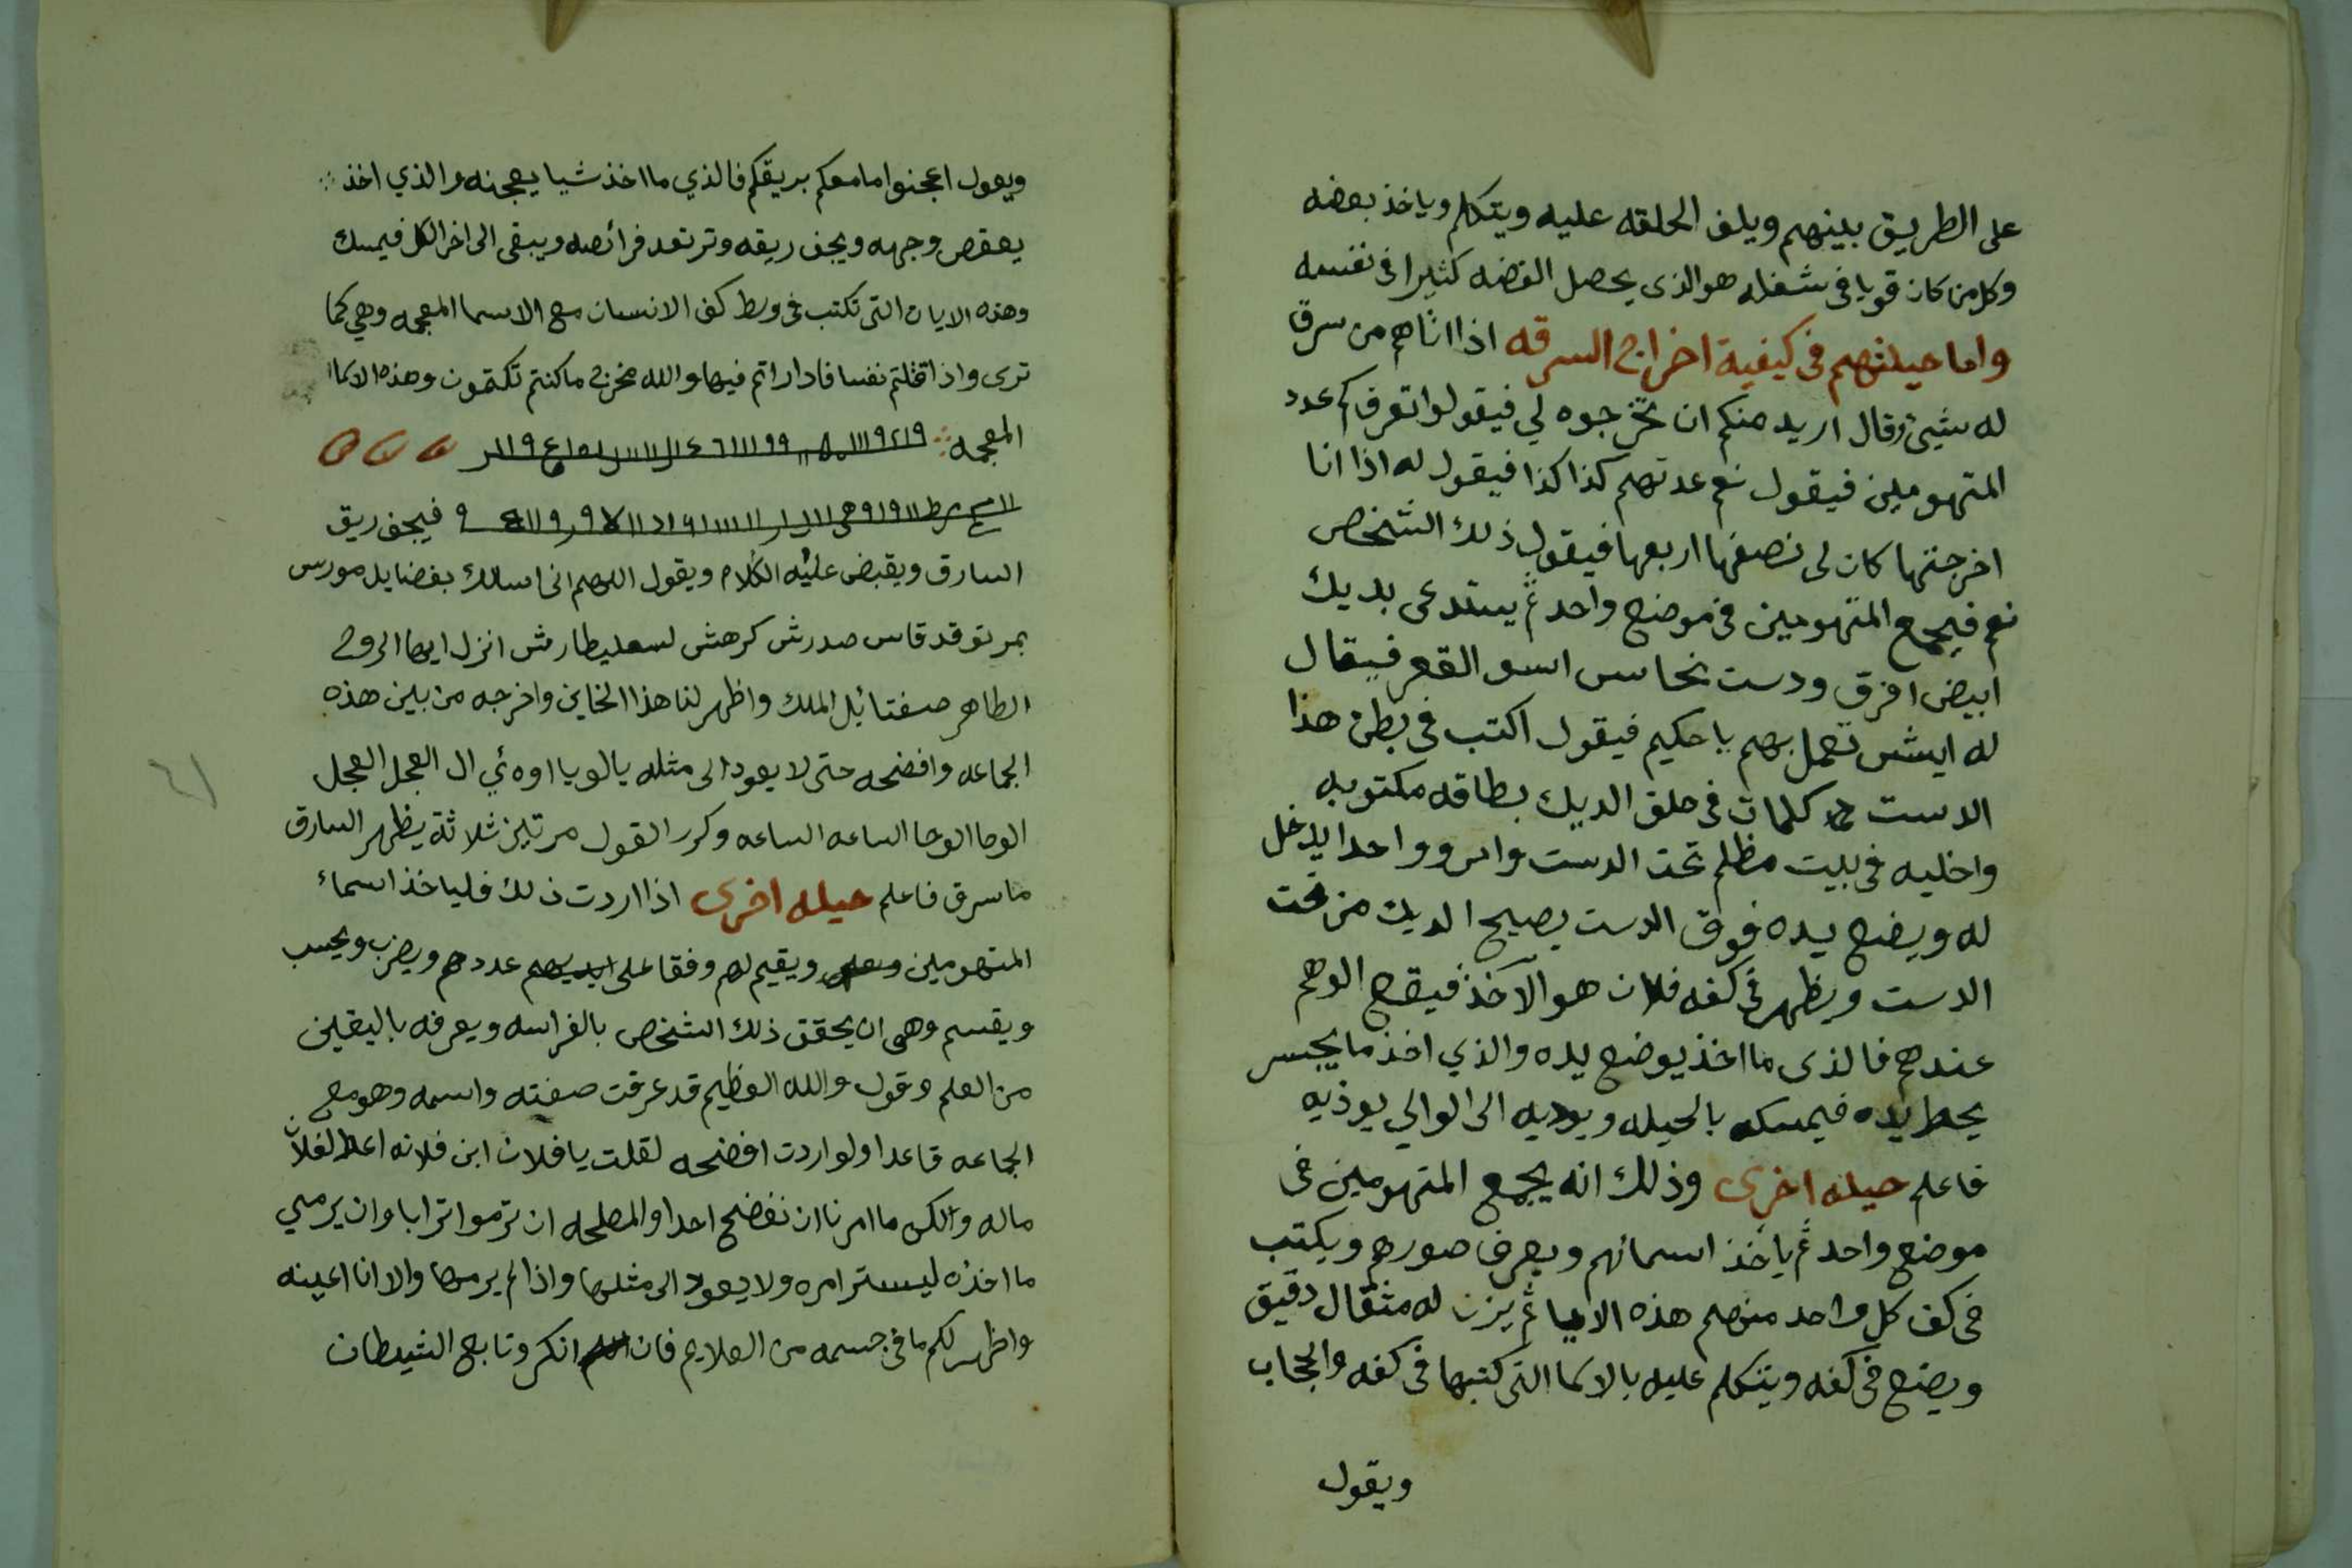 على الطريق بينهم ويلف الحلقه عليه ويتكلم وياخذ بعضه
وكل من كان قويا فى شغله هو الذى يحصل الفضه كثيرا فى نفسه
واما حيلتهم فى كيفية اخراج السرقه اذا اتاهم من سرق
له شيئ وقال اريد منكم ان تخرجوه لي فيقولوا تعرف كم عدد
المتهومين فيقول نعم عدتهم كذا كذا فيقول له اذا انا
اخرجتها كان لى نصفها اربعها فيقول ذلك الشخص
نعم فيجمع المتهومين فى موضع واحد ثم يستدعى بديك
ابيض افرق ودست نحاس اسو القعر فيقال
له ايش تعمل بهم يا حكيم فيقول اكتب فى بطن هذا
الدست كلمات فى حلق الديك بطاقه مكتوبه
واخليه فى بيت مظلم تحت الدست وواحدا يدخل
له ويضع يده فوق الدست يصيح الديك من تحت
الدست ويظهر فى كفه فلان هو الآخذ فيقع الوهم
عندهم فالذى ما اخذ يوضع يده والذي اخذ ما يجسر
يحط يده فيمسكه بالحيله ويوديه الى الوالي يوذيه
فاعلم حيله اخرى وذلك انه يجمع المتهومين فى
موضع واحد ثم ياخذ اسمائهم ويعرف صورهم ويكتب
فى كف كل واحد منهم هذه الاسما ثم يزن له مثقال دقيق
ويضع فى كفه ويتكلم عليه بالاسما التى كتبها فى كفه والحجاب
ويقول
ويقول اعجنوا ما معكم بريقكم فالذي ما اخذ شيا يعجنه والذي اخذ
يعقص وجهه ويجف ريقه وترتعد فرائصه ويبقى الى اخر الكل فيمسك
وهذه الايات التى تكتب فى وسط كف الانسان مع الاسما المعجمه وهي كما
ترى واذ اقتلتم نفسا فادارا تم فيها والله مخرج ما كنتم تكتمون وهذه الاسما
المعجمه
فيجف ريق
السارق ويقبض عليه الكلام ويقول اللهم انى اسالك بفضايل مورس
بمرتوقد قاس صدرش كرهش لسعليطارش انزل ايها الروح
الطاهر صفتائل الملك واظهر لنا هذا الخاين واخرجه من بين هذه
الجماعه وافضحه حتى لا يعود الى مثله يالويا اوه ئي ال العجل العجل
الوحا الوحا الساعه الساعه وكرر القول مرتين ثلاثة يظهر السارق
ما سرق فاعلم حيله اخرى اذا اردت ذلك فلياخذ اسماء
المتهومين ويقيم لهم وفقا على عددهم ويضرب ويحسب
ويقسم وهى ان يحقق ذلك الشخص بالفراسه ويعرفه باليقين
من العلم وقول والله العظيم قد عرفت صفته واسمه وهو مع
الجماعه قاعدا ولو اردت افضحه لقلت يا فلان ابن فلانه اعط لفلان
ماله والكن ما امرنا ان نفضح احدا والمصلحه ان ترموا ترابا وان يرمي
ما اخذه ليستر امره ولا يعود الى مثلها واذا لم يرمها والا انا اعينه
واظهر لكم ما فى جسمه من العلايم فان انكر وتابع الشيطان
٦١